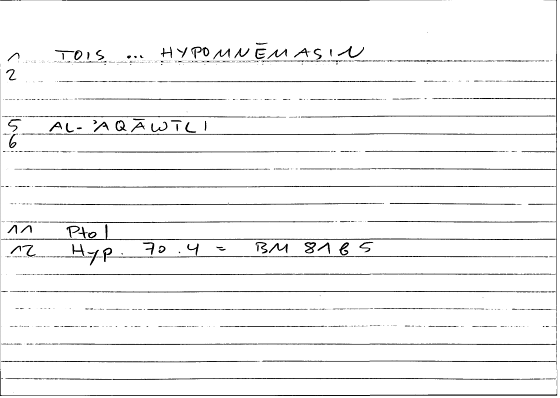 1 TOIS ... HYPOMNĒMASIN
2
5 AL-'AQĀWĪLI
6
11 Ptol
12 Hyp. 70.4 = BM 81 b 5